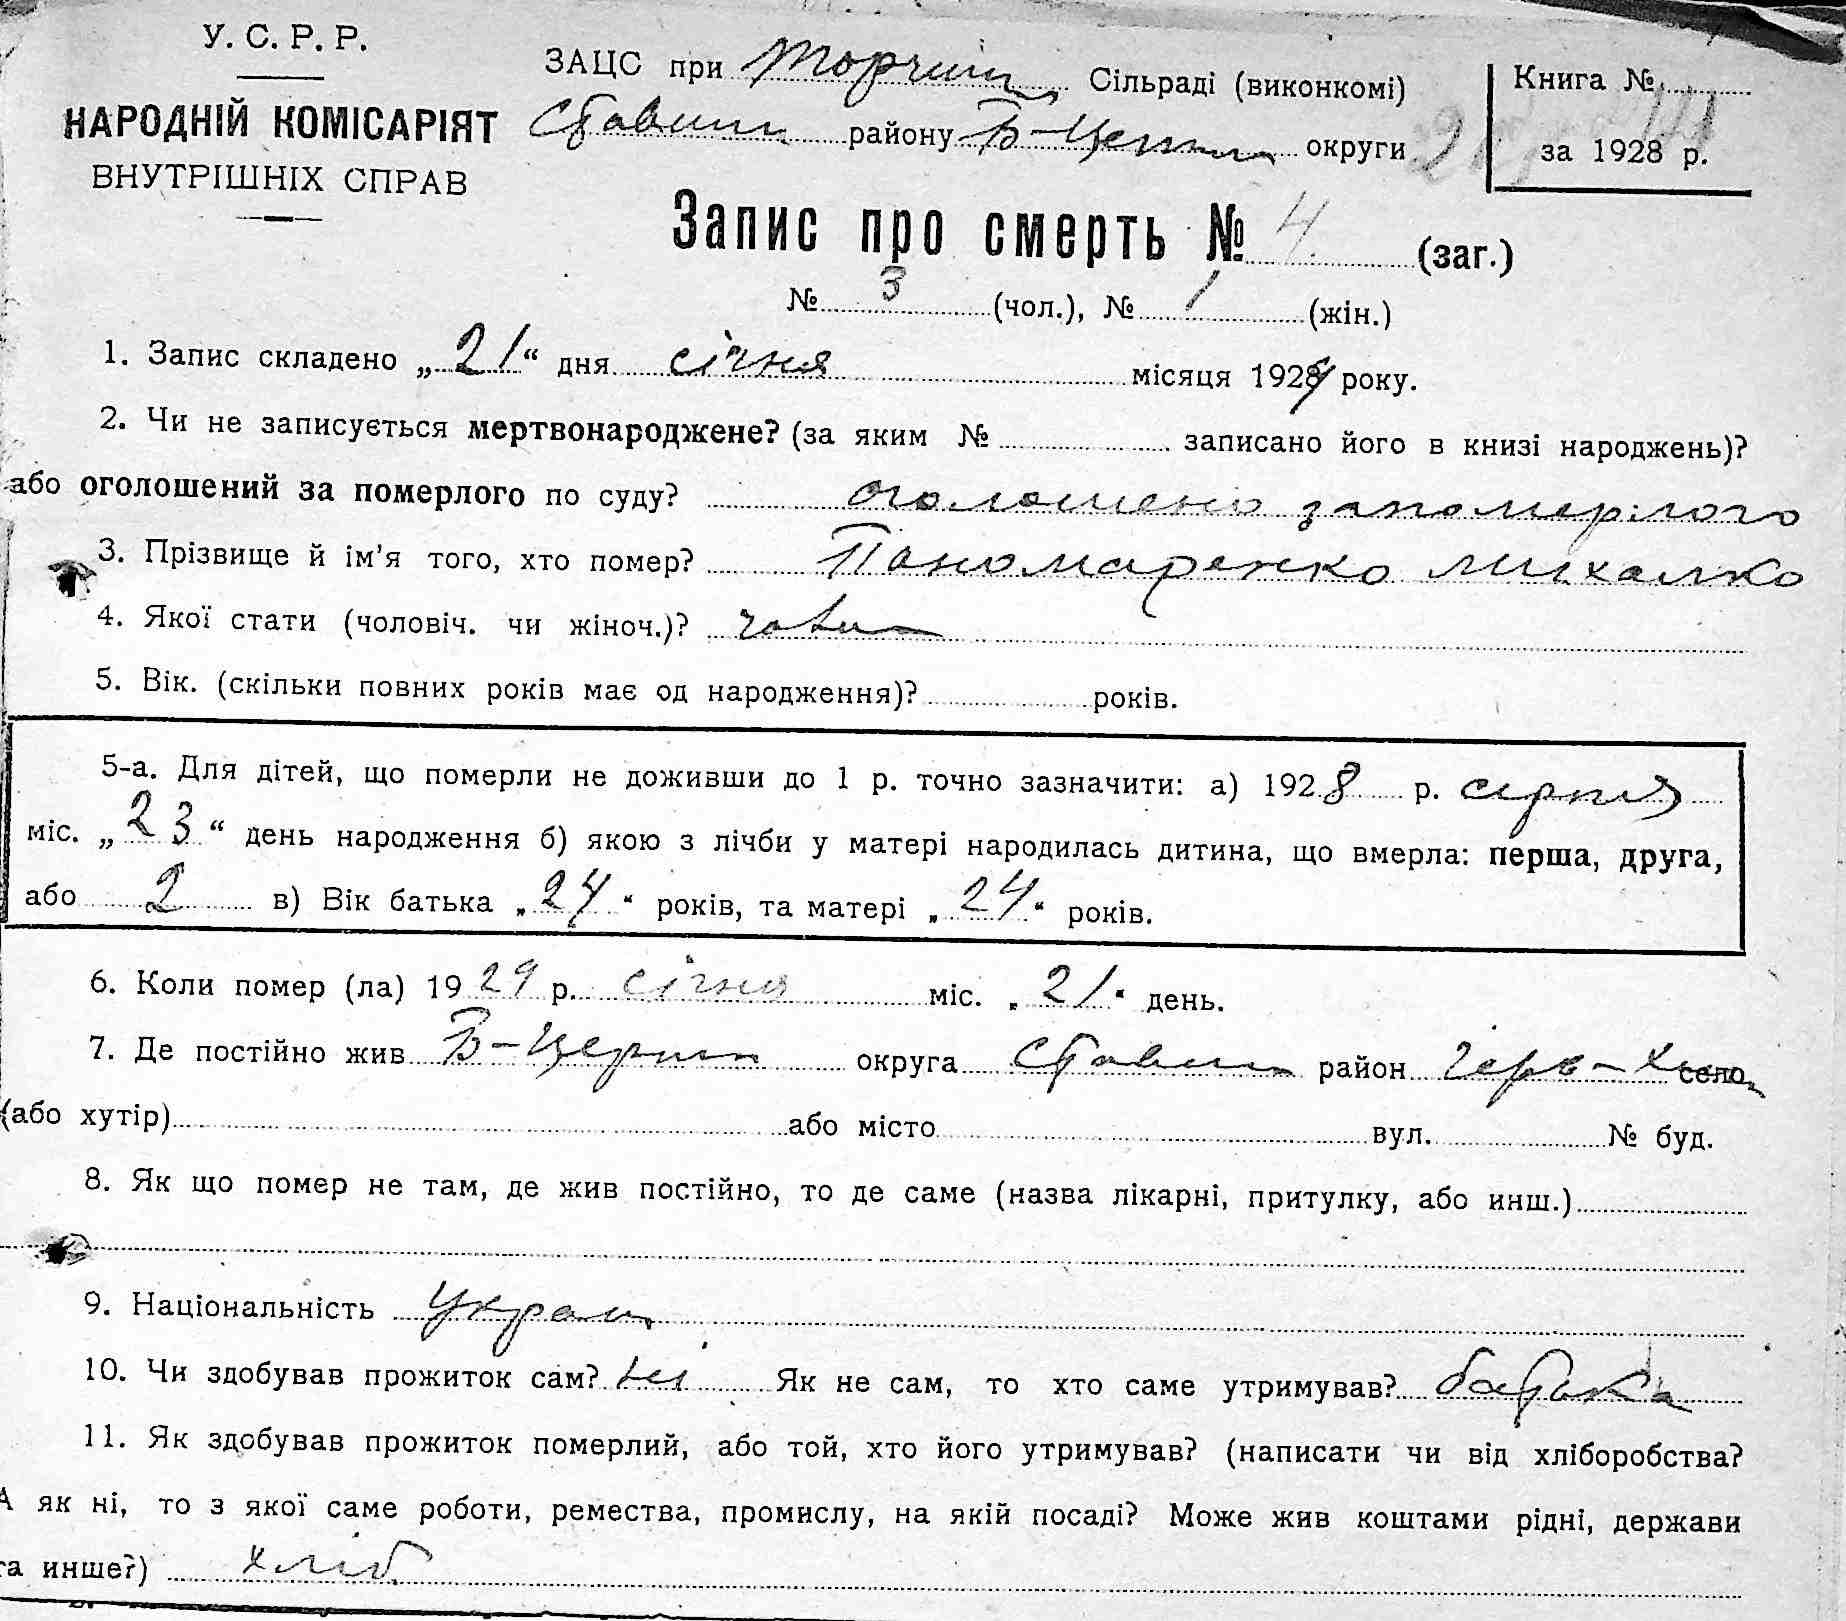 У. С. Р. Р.
НАРОДНІЙ КОМІСАРІЯТ
ВНУТРІШНІХ СПРАВ
ЗАЦС при Торчиц Сільраді (виконкомі)
Ставищ району Б-Церкв округи
Книга №
за 1928 р.
Запис про смерть № 4 (заг.)
№ 3 (чол.), № 1 (жін.)
1. Запис складено „21“ дня січня місяця 1929 року.
2. Чи не записується мертвонароджене? (за яким № записано його в книзі народжень)?
або оголошений за померлого по суду? оголошено запомерлого
3. Прізвище й ім'я того, хто помер? Паномаренко Михалко
4. Якої стати (чоловіч. чи жіноч.)?
5. Вік. (скільки повних років має од народження)? років.
5-а. Для дітей, що померли не доживши до 1 р. точно зазначити: а) 1928 р. серпня
міс. „23“ день народження б) якою з лічби у матері народилась дитина, що вмерла: перша, друга,
або 2 в) Вік батька „24“ років, та матері „24“ років.
6. Коли помер (ла) 1929 р. січня міс. „21“ день.
7. Де постійно жив Б-Церкв округа Ставищ район Черв- село
(або хутір) або місто вул. № буд.
8. Як що помер не там, де жив постійно, то де саме (назва лікарні, притулку, або инш.)
9. Національність Украин
10. Чи здобував прожиток сам? ні Як не сам, то хто саме утримував? батька
11. Як здобував прожиток померлий, або той, хто його утримував? (написати чи від хліборобства?
А як ні, то з якої саме роботи, ремества, промислу, на якій посаді? Може жив коштами рідні, держави
та инше?) хліб.